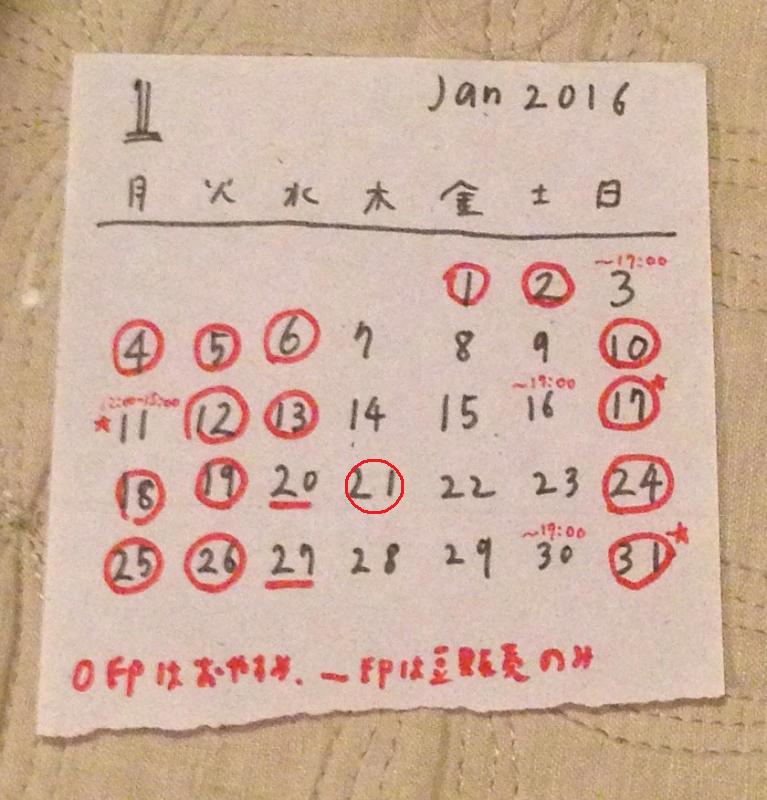 1 Jan 2016
月 火 水 木 金 土 日
~17:00
1 2 3
4 5 6 7 8 9 10
12:00-15:00 ~17:00
11 12 13 14 15 16 17
18 19 20 21 22 23 24
~17:00
25 26 27 28 29 30 31
○印はおやすみ. ー印は豆販売のみ